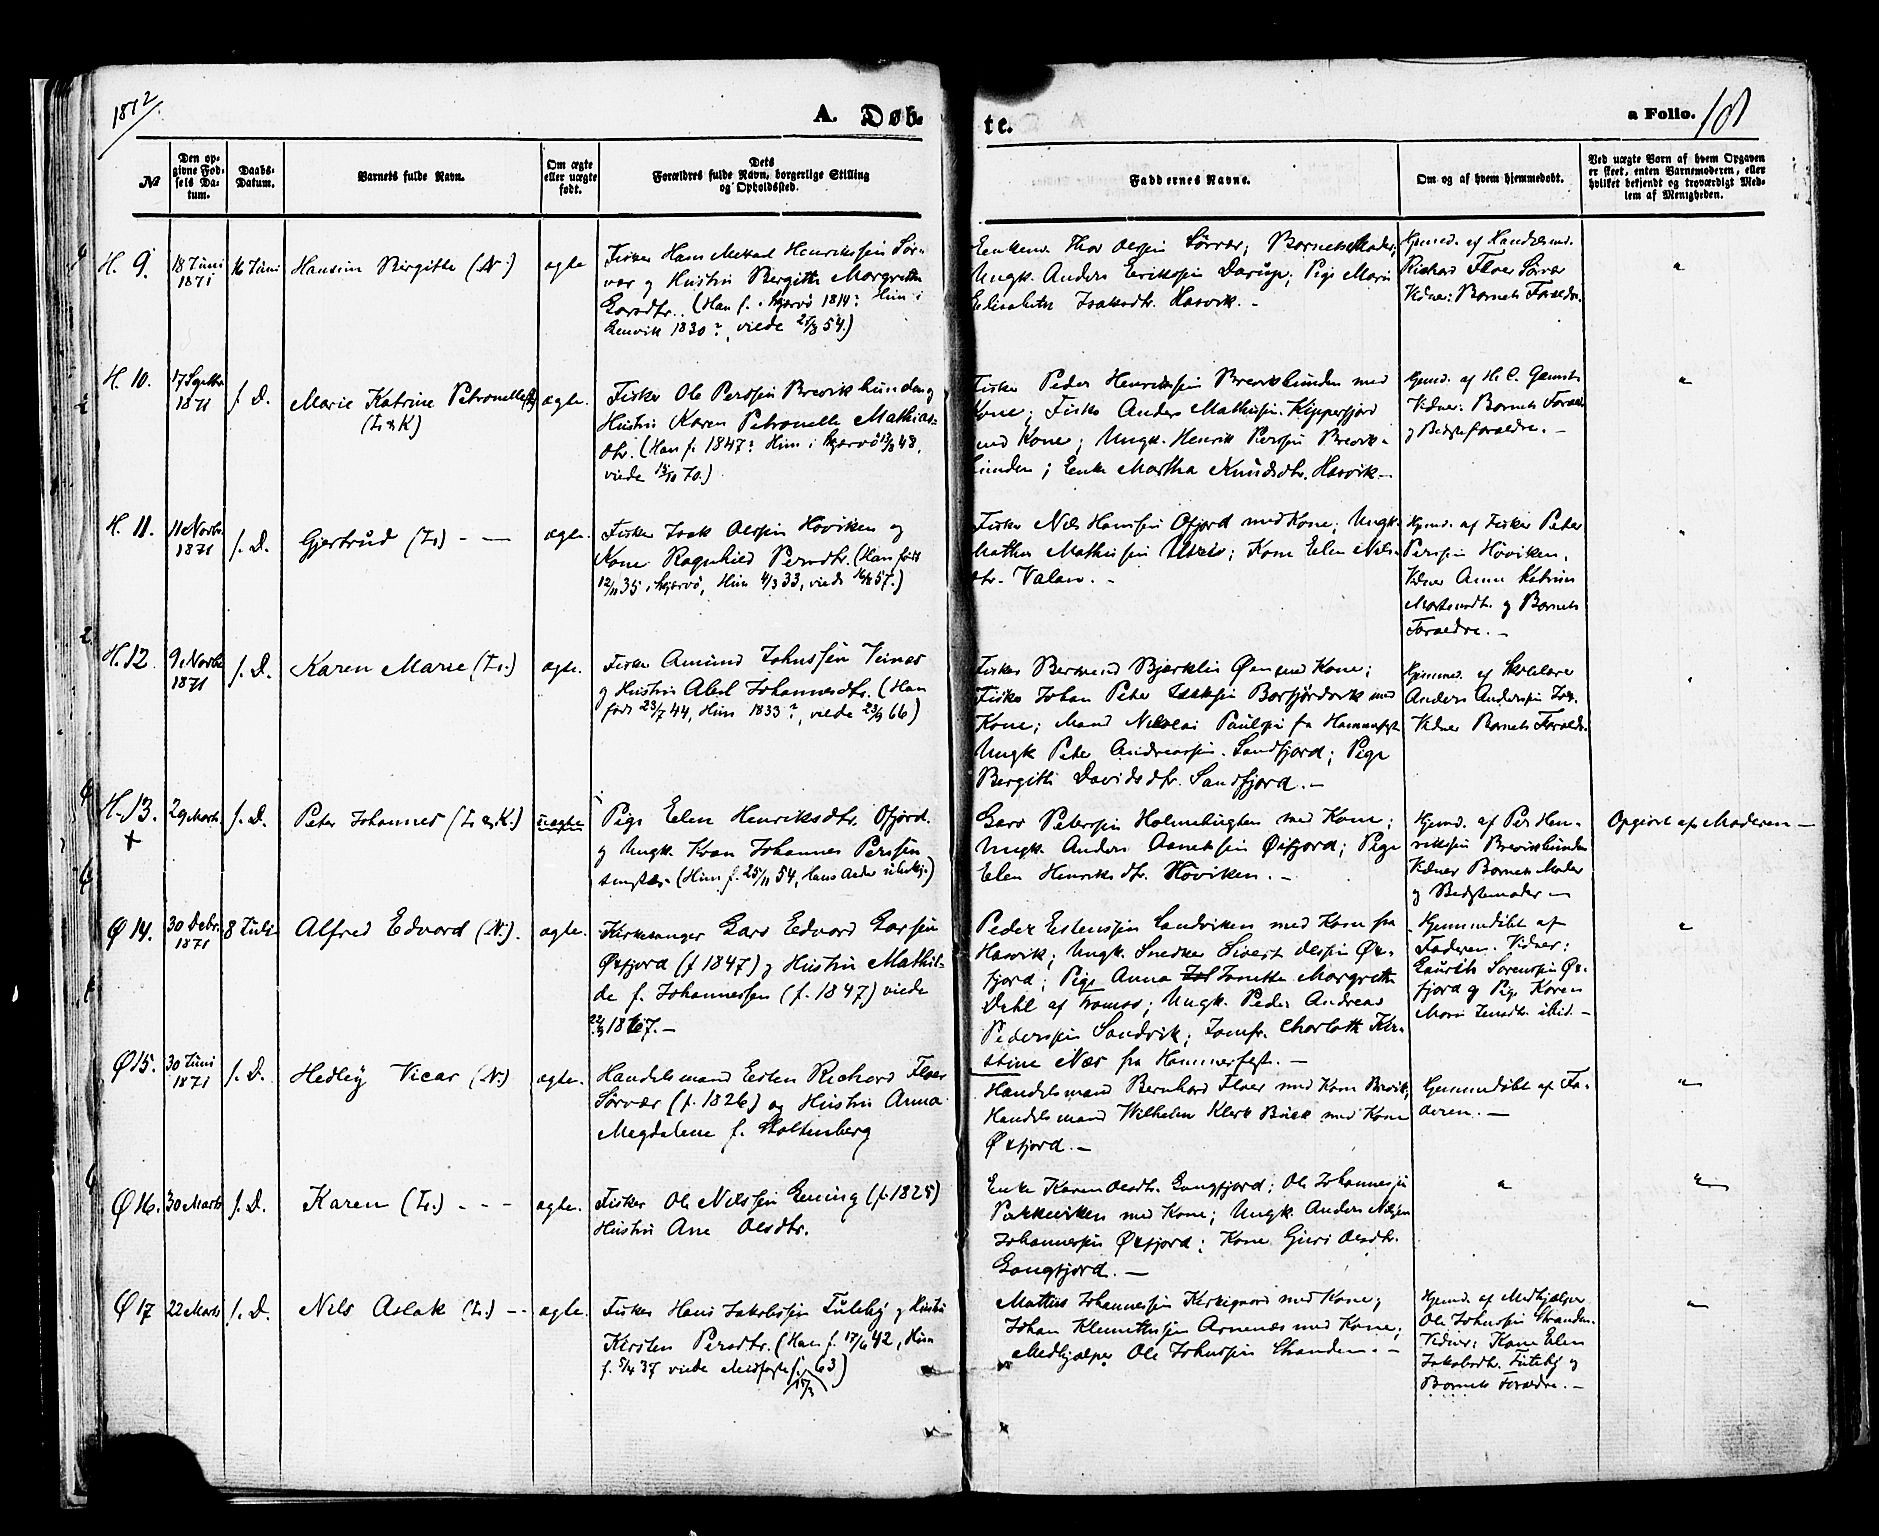 1872.
A. Døb-
te.
a Folio. 101
№
Den op-
givne Fød-
sels Da-
tum.
Daabs-
Datum.
Barnets fulde Navn.
Om ægte
eller uægte
født.
Dets
Forældres fulde Navn, borgerlige Stilling
og Opholdssted.
Faddernes Navne.
Om og af hvem hjemmedøbt.
Ved uægte Barn af hvem Opgaven
er skeet, enten Barnemoderen, eller
hvilket bekjendt og troværdigt Med-
lem af Menigheden.
H. 9.
18 Juni
1871
16 Juni
Hansine Birgitte (N.)
ægte
Fisker Hans Henriksen Sør-
vær og Hustru Bergitte Margrethe
Larsdtr. (Han f. i Skjervø 1814? Hun i
Lenvik 1830?, viede 54.)
Thor Olssen Sørvær; Barnets Moder;
Ungk. Anders Erikssen Darup; Pige Maria
Elisabeth Isaksdtr. Hasvik. -
Hjemmed. af Handelsmd.
Richard Floer Sørvær
Vidner: Barnets Forældre.
"
H. 10.
17 Septbr.
1871
s. D.
Marie Katrine Petronelle
(L. & K)
ægte.
Fisker Ole Perssen Brevikbunden og
Hustru Karen Petronelle Mathias-
dtr. (Han f. 1847? Hun i Skjervø 48,
viede 70.)
Fisker Peder Henrikssen Brevikbunden med
Kone; Fisker Anders Mathissen Kipperfjord
med Kone; Ungk. Henrik Perssen Brevik-
bunden; Enke Martha Knudsdtr. Hasvik -
Hjemmed. af H. C.
Vidner: Barnets Foræld.
og Bedsteforældre. -
"
H. 11.
11 Novbr.
1871
s. D.
Gjertrud (L.) - -
ægte.
Fisker Isak Olssen Høviken og
Kone Ragnhild Persdtr. (Han født
12/11 35 i Skjervø, Hun 4/3 33, viede 57.)
Fisker Nils Hanssen Ofjord med Kone; Ungk.
Mathis Mathissen; Kone Elen Nils-
dtr. Valan. -
Hjemmed. af Fisker Peter
Perssen Høviken.
Vidner Anne Katrine
og Barnets
Forældre. -
"
H. 12
9 Novbr.
1871
s. D.
Karen Marie (L.)
ægte.
Fisker Amund Johnssen Veines
og Hustru Abel Johannesdtr. (Han
født 23/7 44, Hun 1833?, viede 23/9 66)
Fisker Bjerklis med Kone;
Fisker Johan Peter Isaksen Barfjordvik med
Kone; Mand Nikolai Paulssen fra Hammerfest
Ungk. Peter Andreassen Sandfjord; Pige
Bergitte Davidsdtr. Sandfjord. -
Hjemmed. af Skolelærer
Anders Anderssen
Vidner Barnets Forældre.
"
H. 13.
+
29 Marts
s. D.
Peter Johannes (L. & K.)
uægte
Pige Elen Henriksdtr. Ofjord.
og Ungk. Johannes Perssen
(Hun f. 25/11 54, Hans Alder ubekj.)
Lars Peterssen Holmebugten med Kone;
Ungk. Anders Øxfjord; Pige
Elen Henriksdtr. Høviken. -
Hjemmed. af Per Hen-
rikssen Brevikbunden
Vidner Barnets Moder
og Bedstemoder -
Opgivet af Moderen -
Ø 14.
30 Debr.
1871
8 Juli
Alfred Edvard (N.).
ægte.
Kirkesanger Lars Edvard Larssen
Øxfjord (f 1847) og Hustru Mathil-
de f. Johannessen (f. 1847) viede
1867. -
Peder Estenssen Sandviken med Kone fra
Hasvik; Ungk. Snedker Sivert Olssen Øx-
fjord; Pige Anna Jonette Margrethe
Dahl af Tromsø; Ungk. Peder Andreas
Pederssen Sandvik; Jomfr. Charlotte Kir-
stine Næs fra Hammerfest. -
Hjemmedøbt af
Faderen. Vidner:
Laurits Sørenssen Øx-
fjord og Pige Karen
Marie ibid. -
"
Ø 15.
30 Juni
1871
s. D.
Hedley Vicar (N.)
ægte.
Handelsmand Esten Richard Floer
Sørvær (f. 1826) og Hustru Anna
Magdalene f. Stoltenberg
Handelsmand Bernhard Floer med Kone Brevik,
Handelsmand Wilhelm Klerk Buck med Kone
Øxfjord. -
Hjemmedøbt af Fa-
deren. -
"
Ø 16.
30 Marts
s. D.
Karen (L.) - - -
ægte.
Fisker Ole Nilssen (f. 1825)
Hustru Ane Olsdtr.
Enke Karen Olsdtr. Langfjord; Ole Johannessen
med Kone; Ungk. Anders Nilssen
Johannessen Øxfjord; Kone Guri Olsdtr.
Langfjord. -
"
"
Ø 17
22 Marts
s. D.
Nils Aslak (L.) - -
ægte.
Fisker Hans Jakobssen Tuleby og Hustru
Kirsten Persdtr. (Han f. 17/6 42, Hun
f. 5/4 37 viede 63)
Mathis Johannessen med Kone;
Johan Klemetssen Arnenæs med Kone;
Medhjælper Ole Johnssen Stranden. -
Hjemmed. af Medhjælper
Ole Johnssen Stranden.
Vidner: Kone Elen
Jakobsdtr. og
Barnets Forældre. -
"